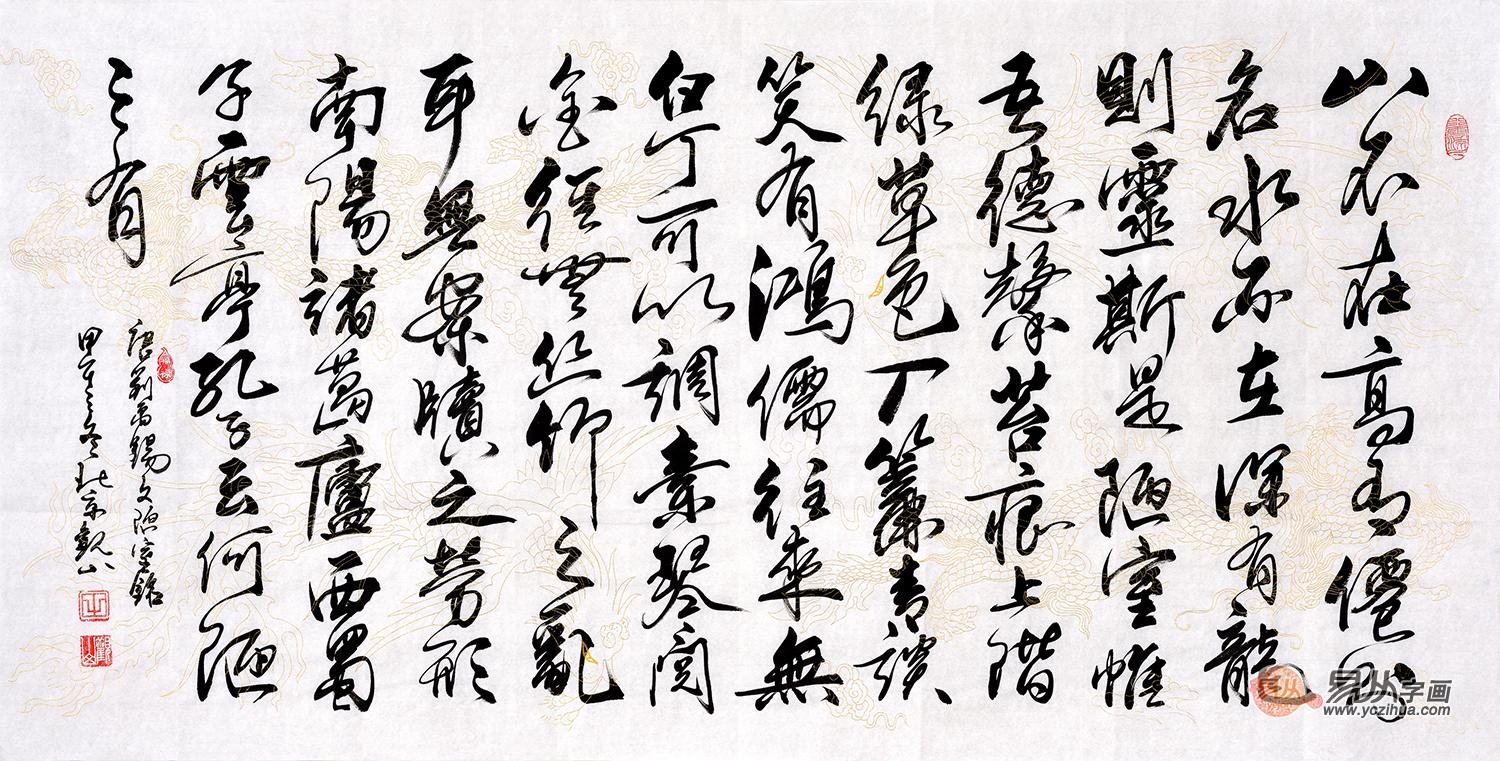 山不在高有僊則
名水不在深有龍
則靈斯是陋室惟
吾德馨苔痕上階
緑草色入簾青談
笑有鴻儒往來無
白丁可以調素琴閲
金經無絲竹之亂
耳無案牘之勞形
南陽諸葛廬西蜀
子雲亭孔子云何陋
之有
唐劉禹錫文陋室銘
甲午之冬京觀山
觀山
易从字画
www.yczihua.com